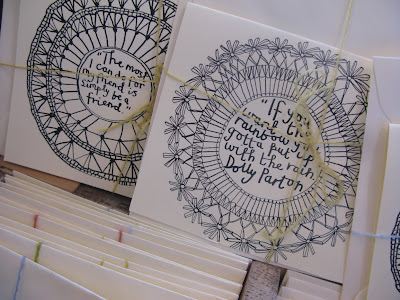 "The most
I can do for
my friend is
simply be a
friend."
"If you
want the
rainbow you
gotta put up
with the rain."
Dolly Parton